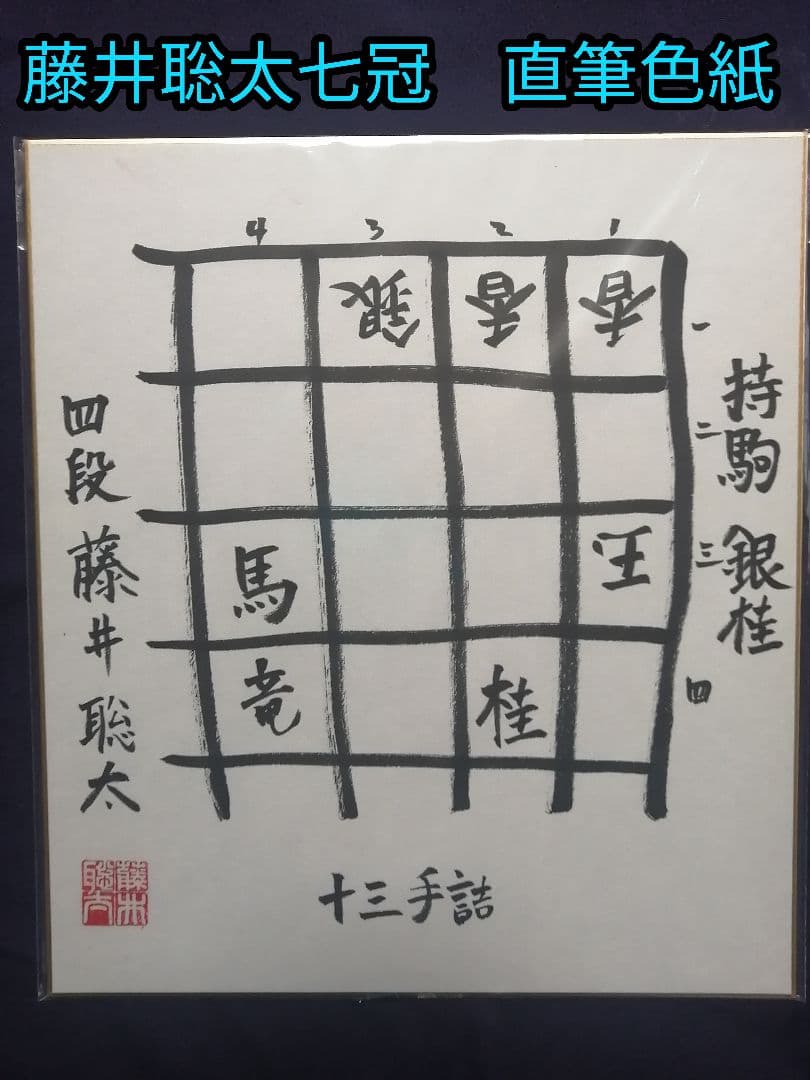 藤井聡太七冠 直筆色紙
4 3 2 1
銀 香 香 一
二
馬 玉 三
竜 桂 四
持駒 銀桂
四段 藤井聡太
藤井聡太
十三手詰